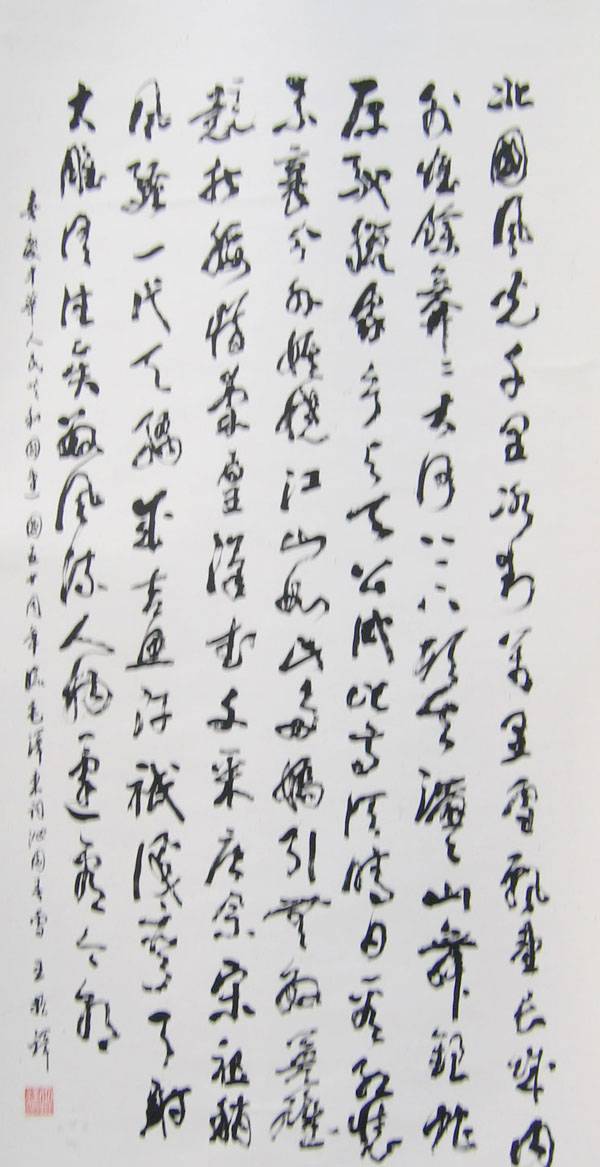 北國風光千里冰封萬里雪飄望長城內
外惟餘莽々大河上下頓失滔々山舞銀蛇
原馳蠟象欲与天公試比高須晴日看紅裝
素裹分外妖嬈江山如此多嬌引無數英雄
競折腰惜秦皇漢武文采唐宗宋祖稍
風騷一代天驕成吉思汗祇識彎弓射
大雕俱往矣數風流人物還看今朝
喜慶中華人民共和國建國五十周年臨毛澤東詞沁園春雪 王